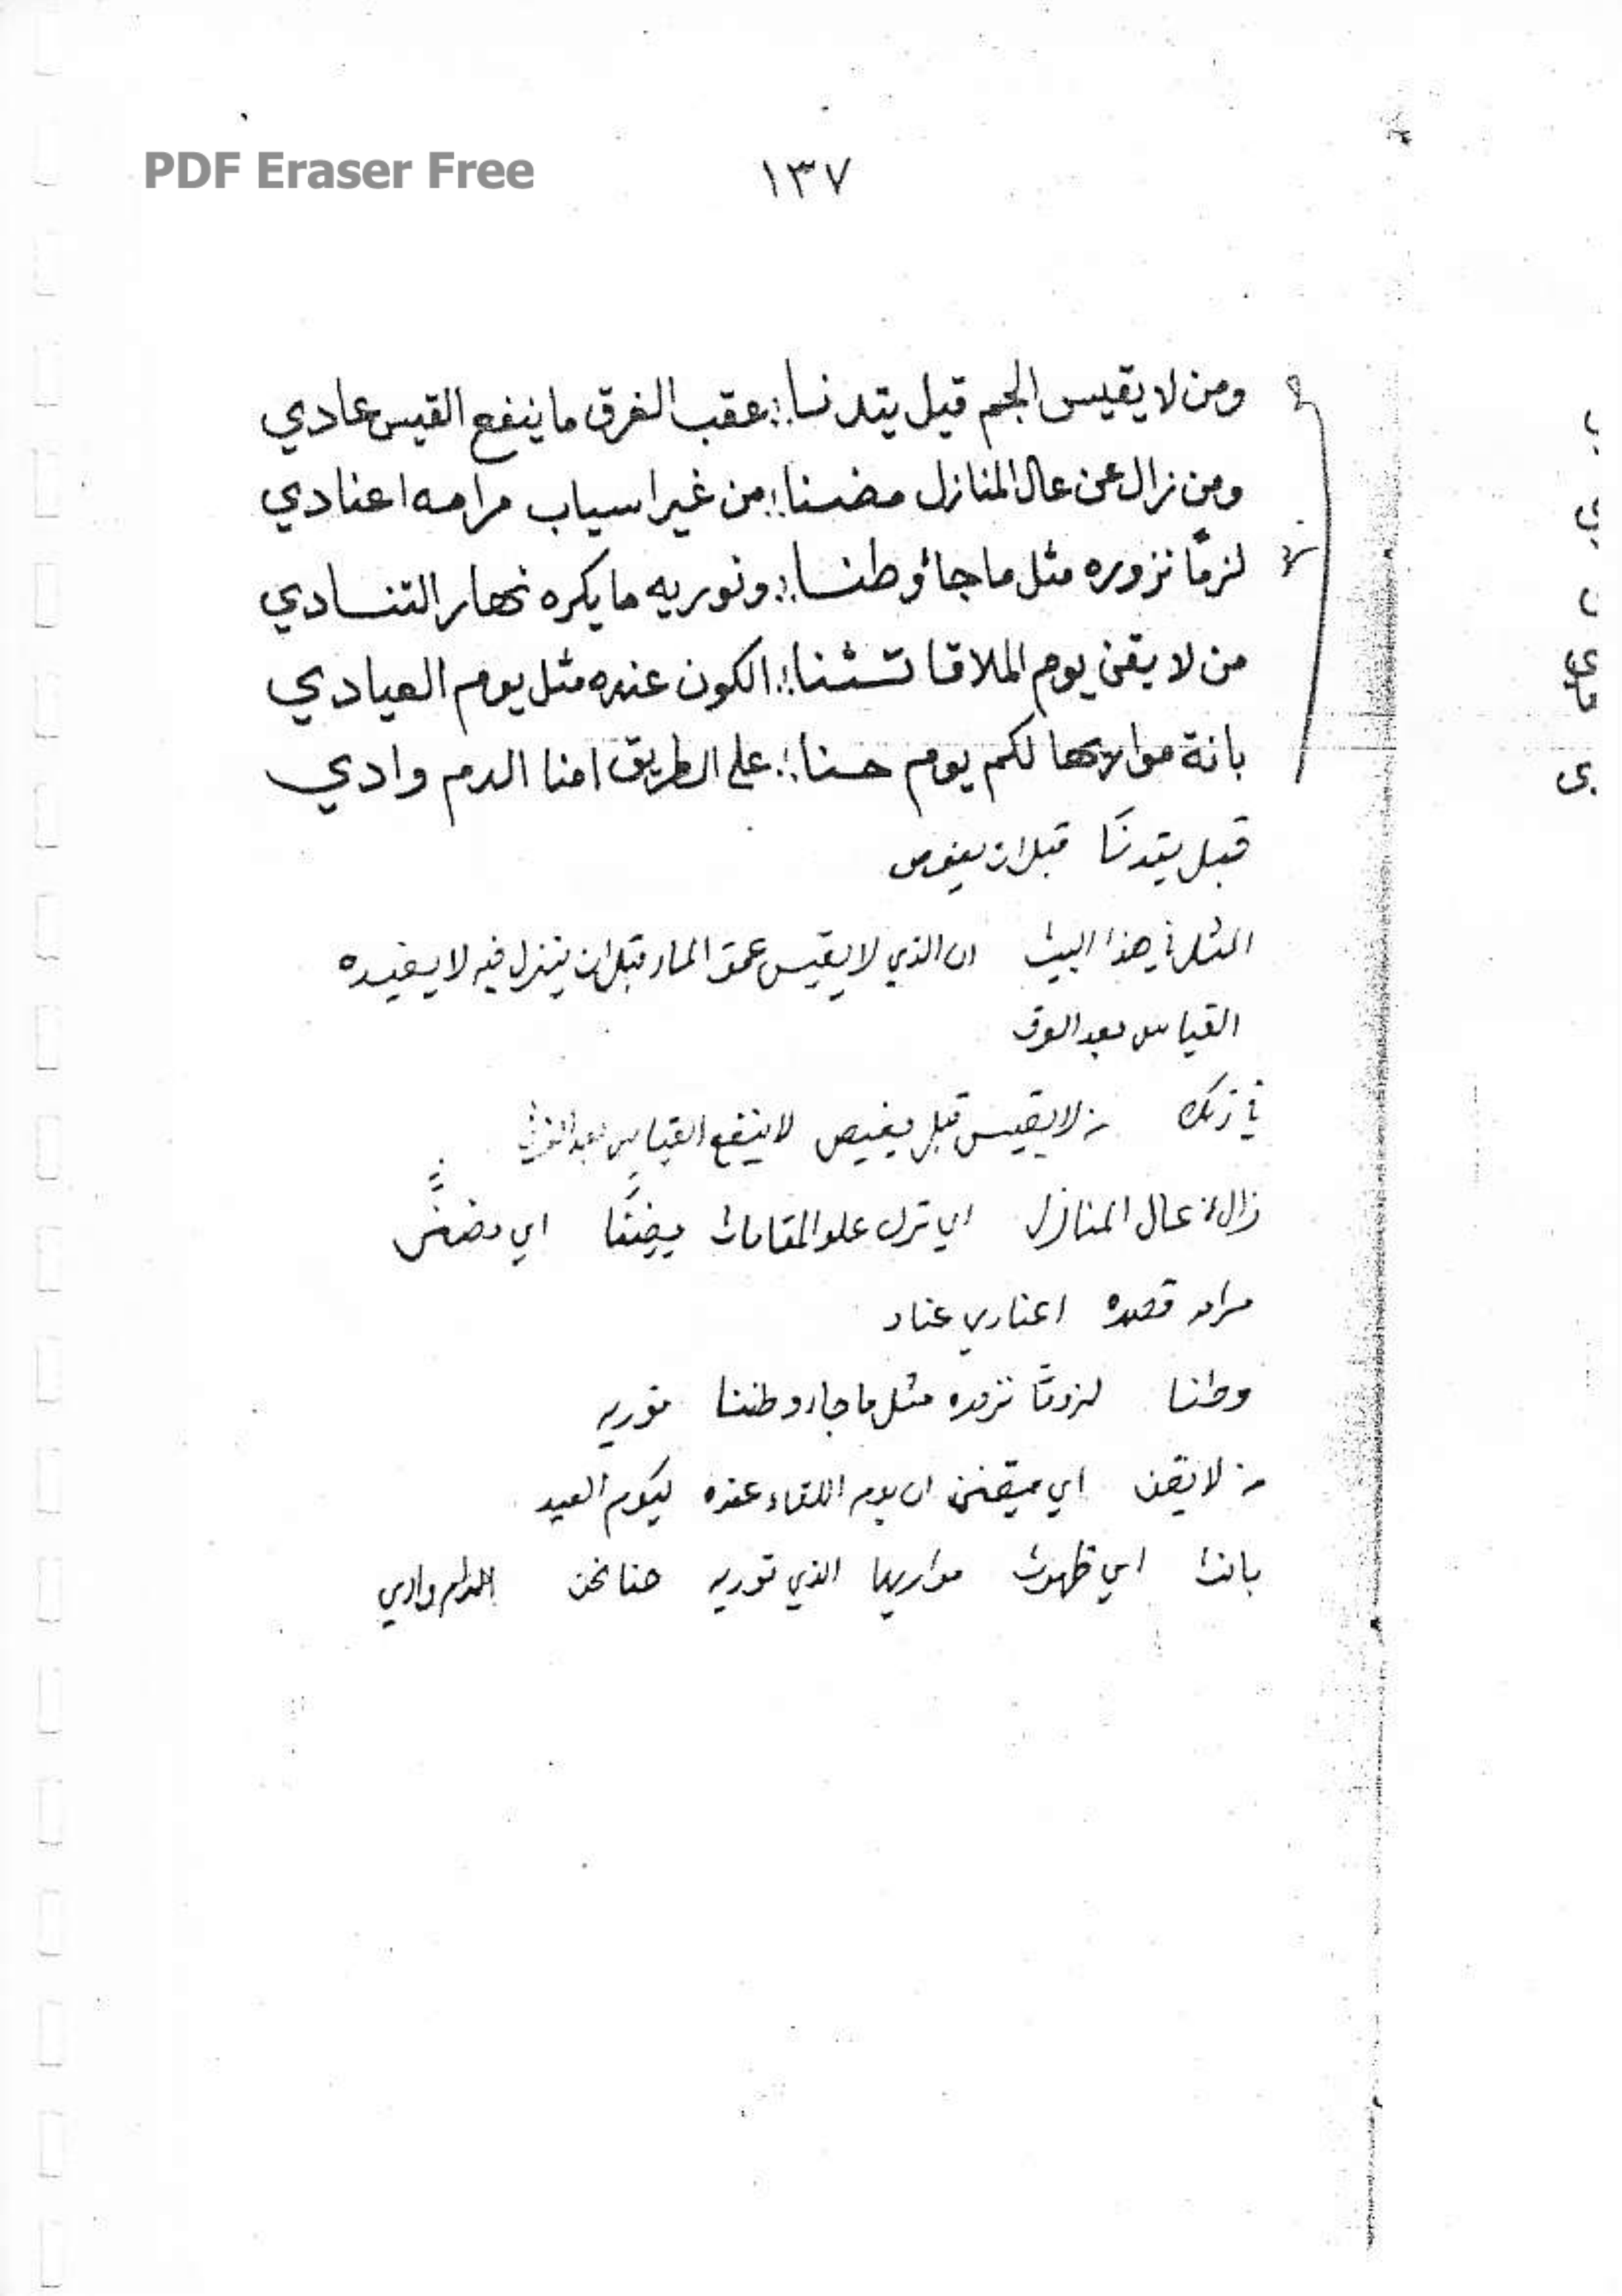 PDF Eraser Free
١٣٧
ومن لا يقيس الجم قبل يتدنسا :: عقب الغرق ما ينفع القيس عادي
ومن زال عن عال المنازل مضنا :: من غير اسباب مرامه اعنادي
لزمًا نزوره مثل ما جا وطنسا :: ونوريه ما يكره نهار التنسادي
من لا يقن يوم الملاقا تشنا :: الكون عنده مثل يوم العيادي
بانة مواريها لكم يوم حسنا :: على الطريق امنا الدم وادي
قبل يتدنَّا قبل ان يغوص
المثل في هذا البيت ان الذي لا يقيس عمق الماء قبل ان ينزل فيه لا يفيده
القياس بعد الغرق
في ذلك من لا يقيس قبل يغيص لا ينفع القياس بعد
زال عن عال المنازل اي ترك علو المقامات اي
مرامه قصده اعنادي عناد
وطنا لزومًا نزوره مثل ما جاء وطننا نوريه
من لا يقن اي ان يوم اللقاء عنده كيوم العيد
بانت اي ظهرت مواريها الذي توريه حنا نحن الدم وادي